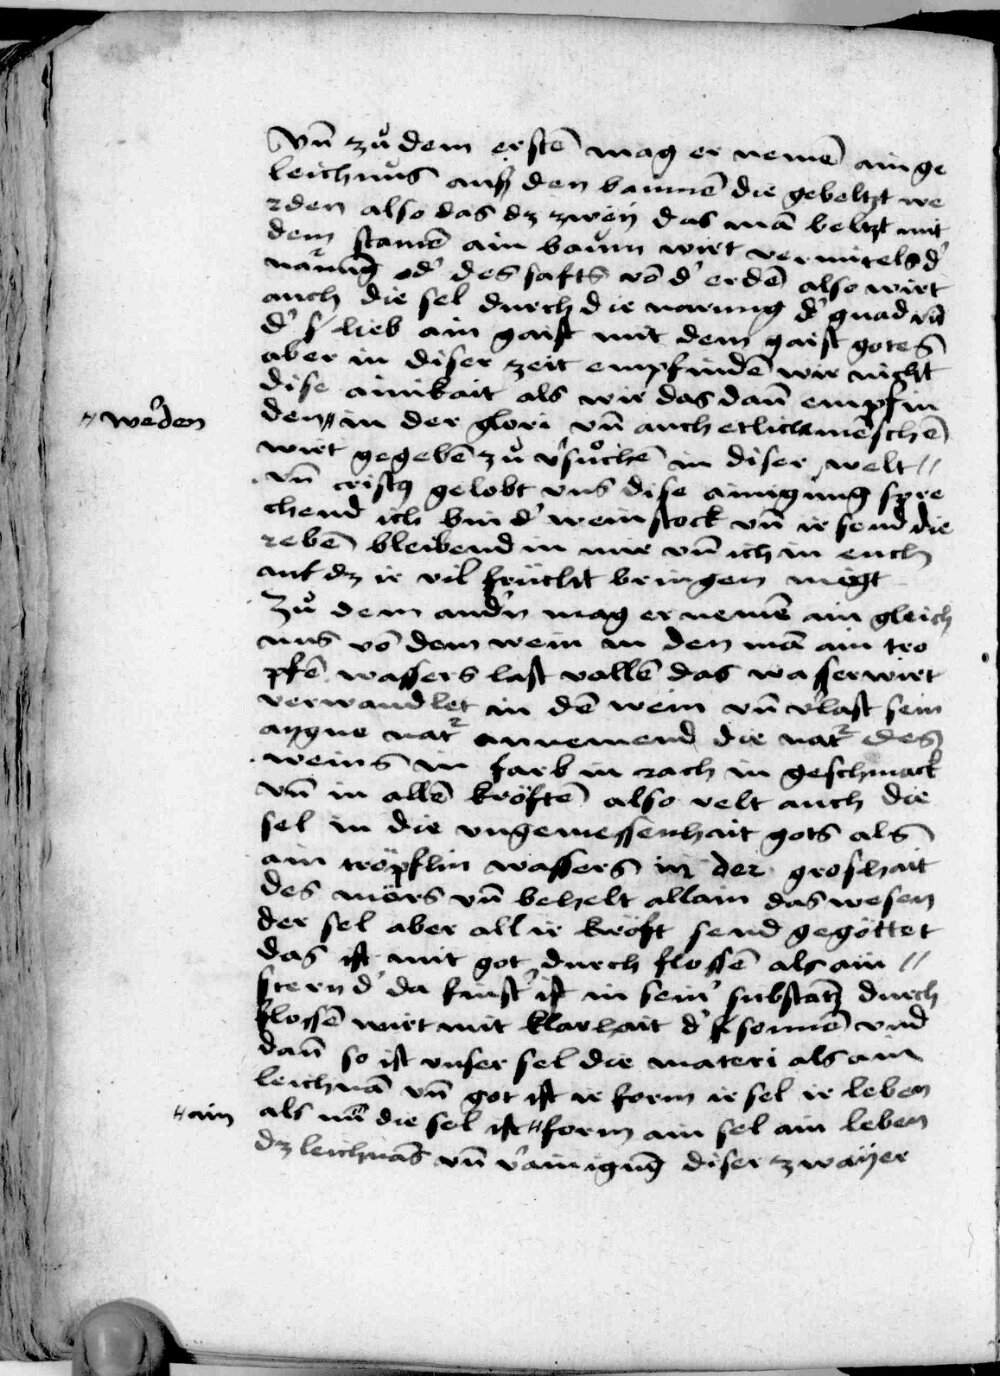 Vn̄ zů dem erstē mag er nemē ain ge
leichnus̄ auß den baumē die gebeltzt we
rden also das dz zweÿ das mā beltzt mit
dem stamē ain baum wirt vermitels d'
narūng od' des safts vō d' erdē also wirt
auch die sel durch die narung d' gnad vn̄
d' lieb ain gaist mit dem gaist gotes
aber in diser zeit empfindē wir nicht
dise ainikait als wir das dan̄ empfin
den〃 in der glori vn̄ auch etlichē mēschē
〃 werden
wirt gegebē zů v'sůchē in diser welt〃
vn̄ cristꝯ gelobt vns dise ainigung spre
chend ich bin d' weinstock vn̄ ir send die
rebē bleibend in mir vn̄ ich in euch
auf dz ir vil frücht bringen mögt
Zů dem and'n mag er nemē ain gleich
nus vō dem wein in den mā ain tro
pfē wassers last vallē das wasser wirt
verwandlet in dē wein vn̄ v'last sein
aÿgne nat2 annemend die nat2 des
weins in farb in rach in geschmack
vn̄ in allē kröftē also velt auch die
sel in die vngemessenhait gots als
ain tröpflin wassers in der groshait
des mörs vn̄ behelt allain das wesen
der sel aber all ir kröft send gegöttet
das ist mit got durch flossē als ain 〃
stern d' da finst' ist in sein' substātz durch
flossē wirt mit klarhait d' sonnē vnd
dan̄ so ist vnser sel die materi als ain
leichnā vn̄ got ist ir form ir sel ir leben
als nū die sel ist〃 form ain sel ain leben
〃 ain
dz leichnās vn̄ v'ainigūng diser zwaÿer